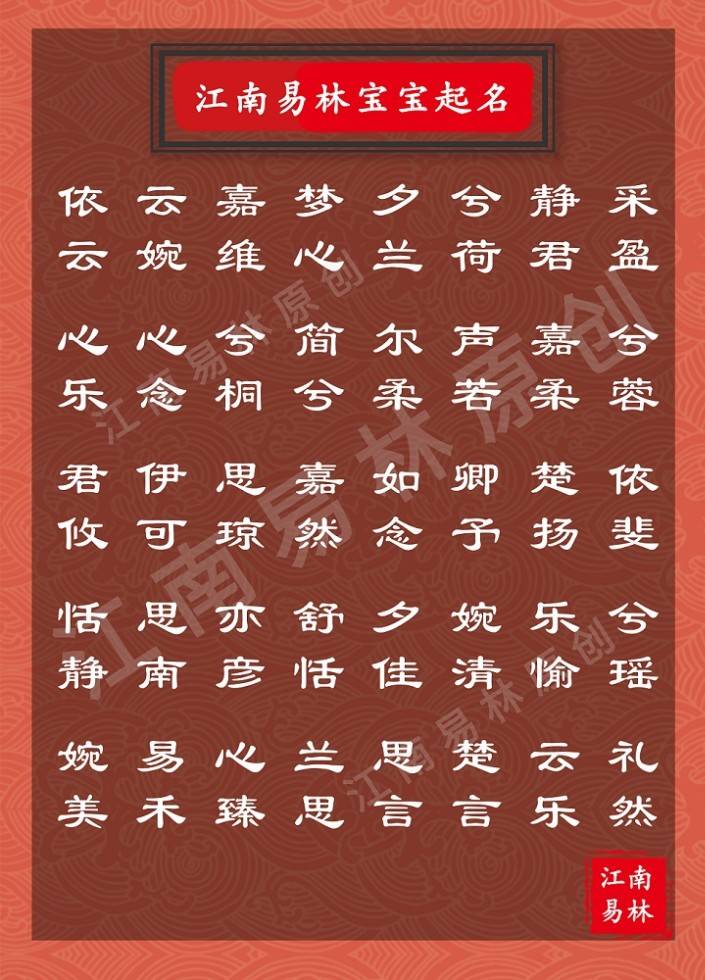 江南易林宝宝起名
依云嘉梦夕兮静采
云婉维心兰荷君盈
心心兮简尔声嘉兮
乐念桐兮柔若柔蓉
君伊思嘉如卿楚依
攸可琼然念予扬斐
恬思亦舒夕婉乐兮
静南彦恬佳清愉瑶
婉易心兰思楚云礼
美禾臻思言言乐然
江南易林原创
江南易林原创
江南易林原创
江南
易林